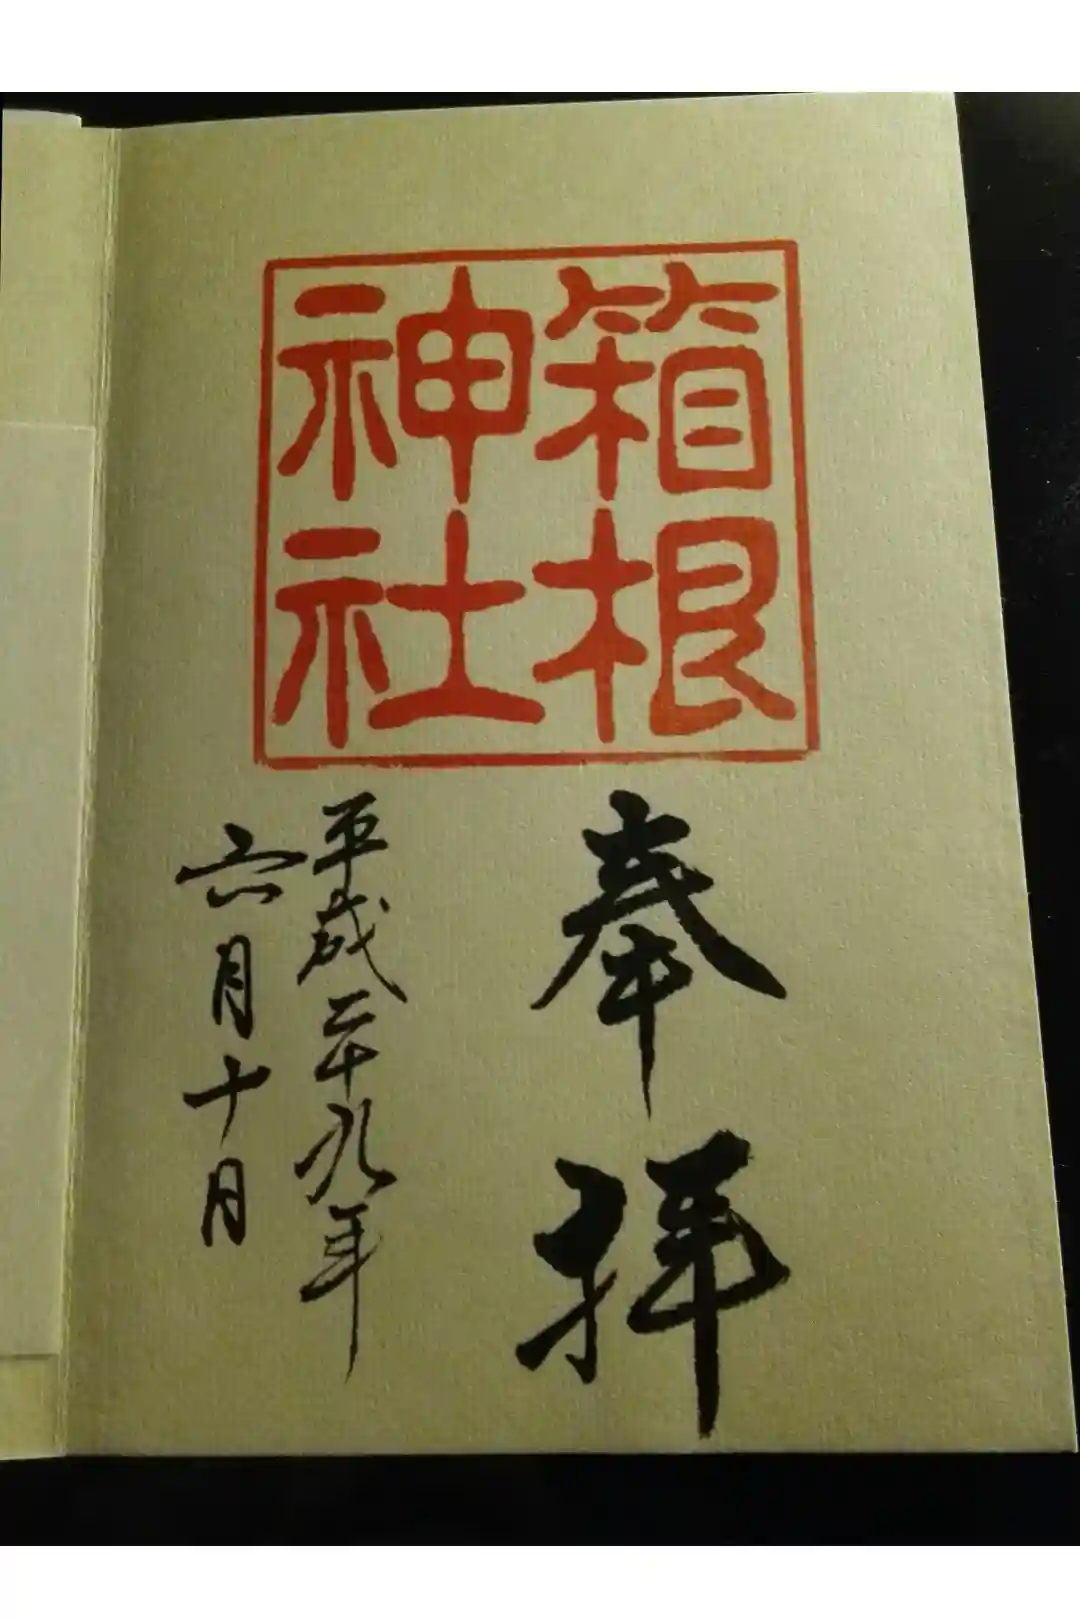 箱根
神社
奉拝
平成二十九年
六月十日